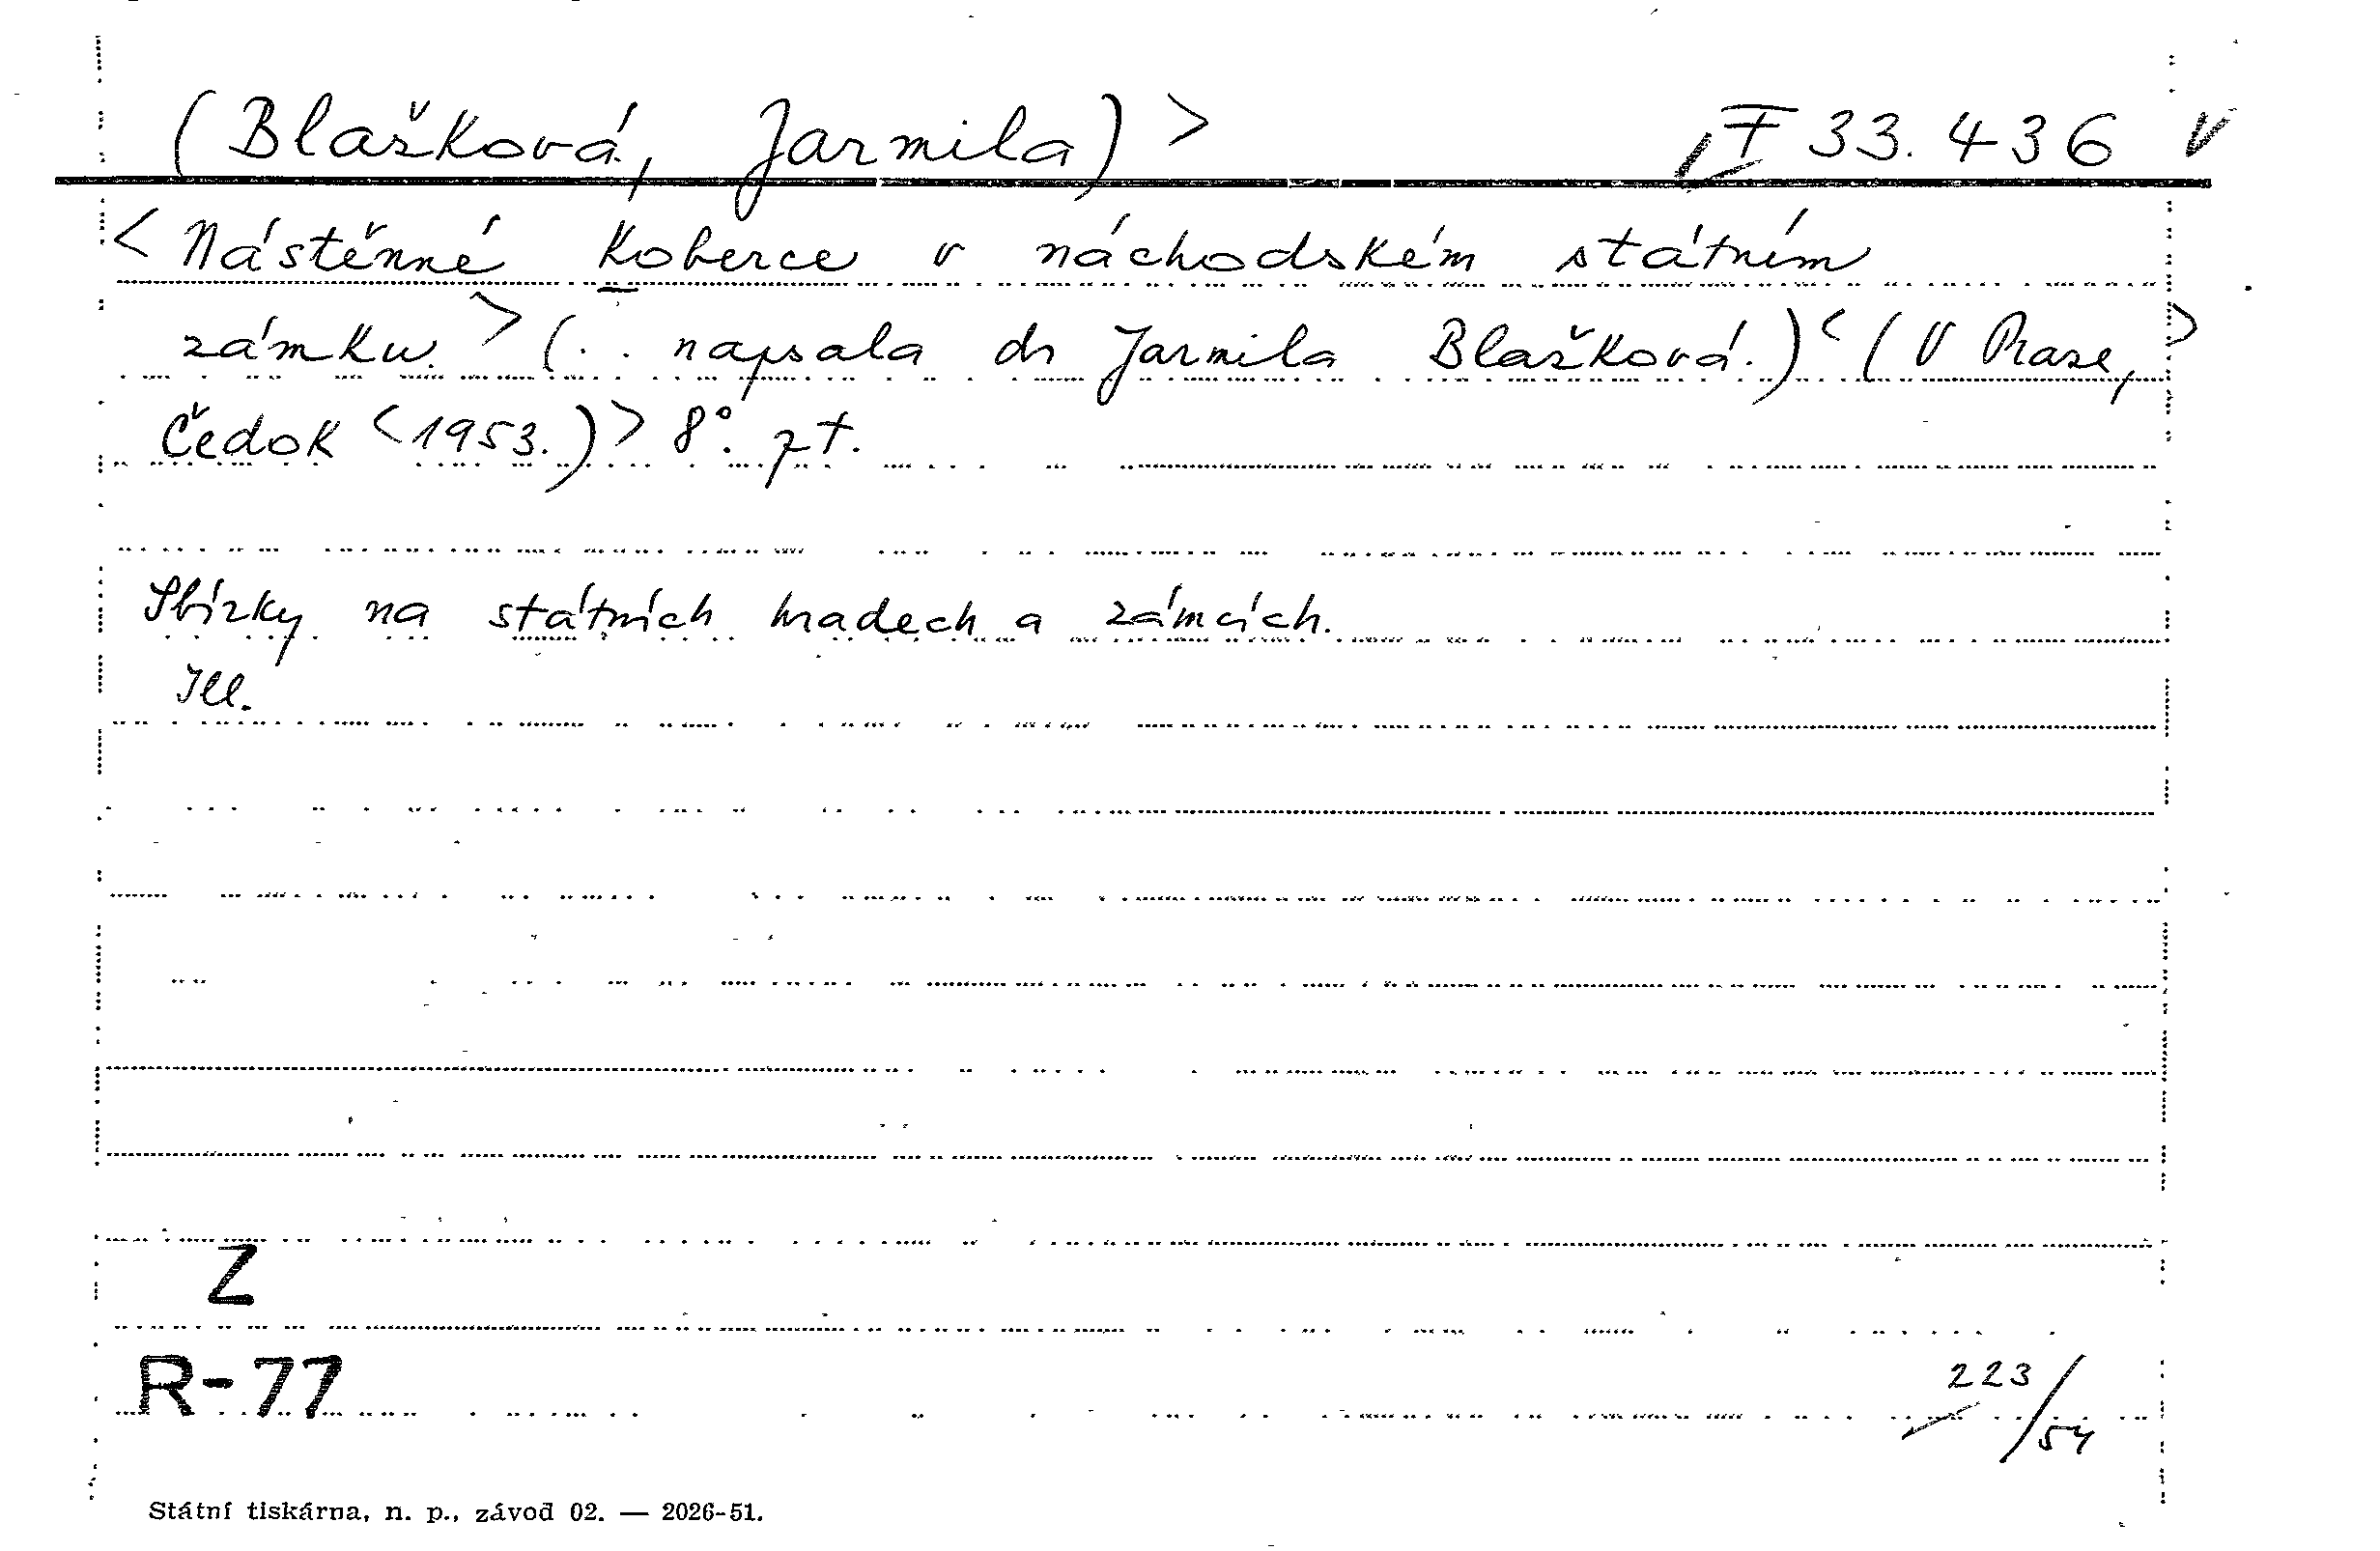 (Blašková, Jarmila)> I 33.436 V
<Nástěnné koberce v náchodském státním
zámku.> (.. napsala dr Jarmila Blašková.) <(V Praze,>
Čedok <1953.)> 8°. pt.
Sbírky na státních hradech a zámcích.
Ill.
Z
R-77
223/54
Státní tiskárna, n. p., závod 02. — 2026-51.